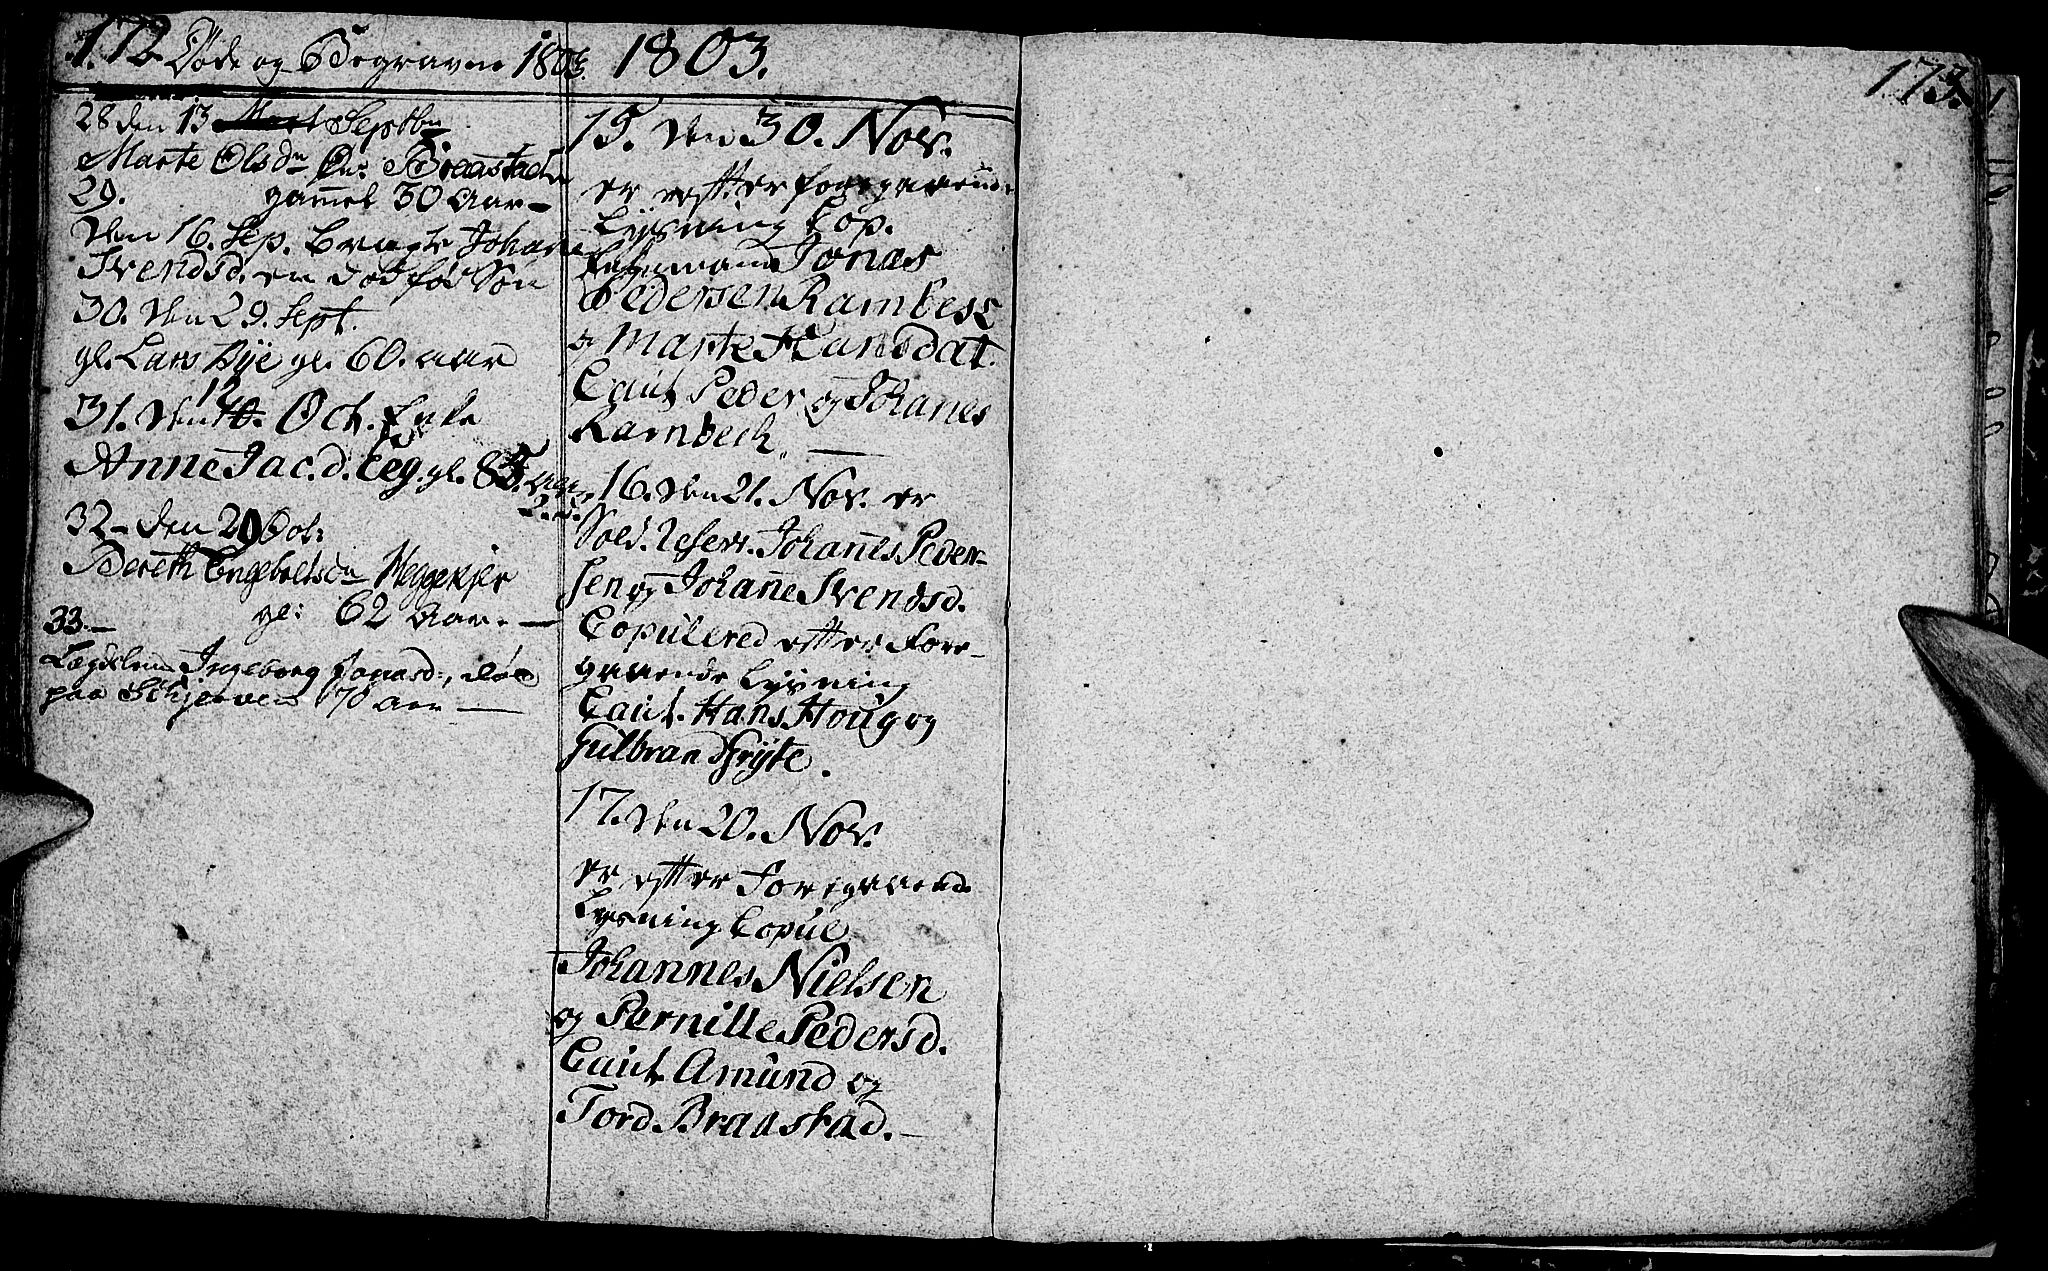 172. Døde og Begravne 180
28 den 13 Septbr
Marte Olsdr Braastad
29. gam̄el 30 Aar
Den 16. Sep. bragte Johane
Svendsd. en dødfød Søn
30. Den 29. Sept.
gl. Lars Bÿe gl. 60. aar
31. Den 12 Oct. Enke
Anne Jac.d. Eeg. gl. 85. aar
32 - Den 29 Oct:
Bereth Engebretsdr Heggekjer
gl: 62 Aar.
33.
Lægdslem Ingeborg Jonasd:, død
paa Schjerven 70 Aar
1803.
15. Den 30. Nov.
er efter foregaaende
Lÿsning Cop.
Jonas
Pedersen Rambeck
og Marte Hansdat.
Caut. Peder og Johan̄es
Rambech
16. Den 21. Nov. er
Sold. Reserv. Johan̄es Peder-
sen og Johan̄e Svendsd.
Copulered efter Fore-
gaaende Lysning
Caut. Hans Houg og
Gulbran Frÿte.
17. Den 20. Nov.
er efter Foregaaende
Lysning Copul.
Johannes Nielsen
og Pernille Pedersd.
Caut. Amund og
Tord. Braastad.
173.